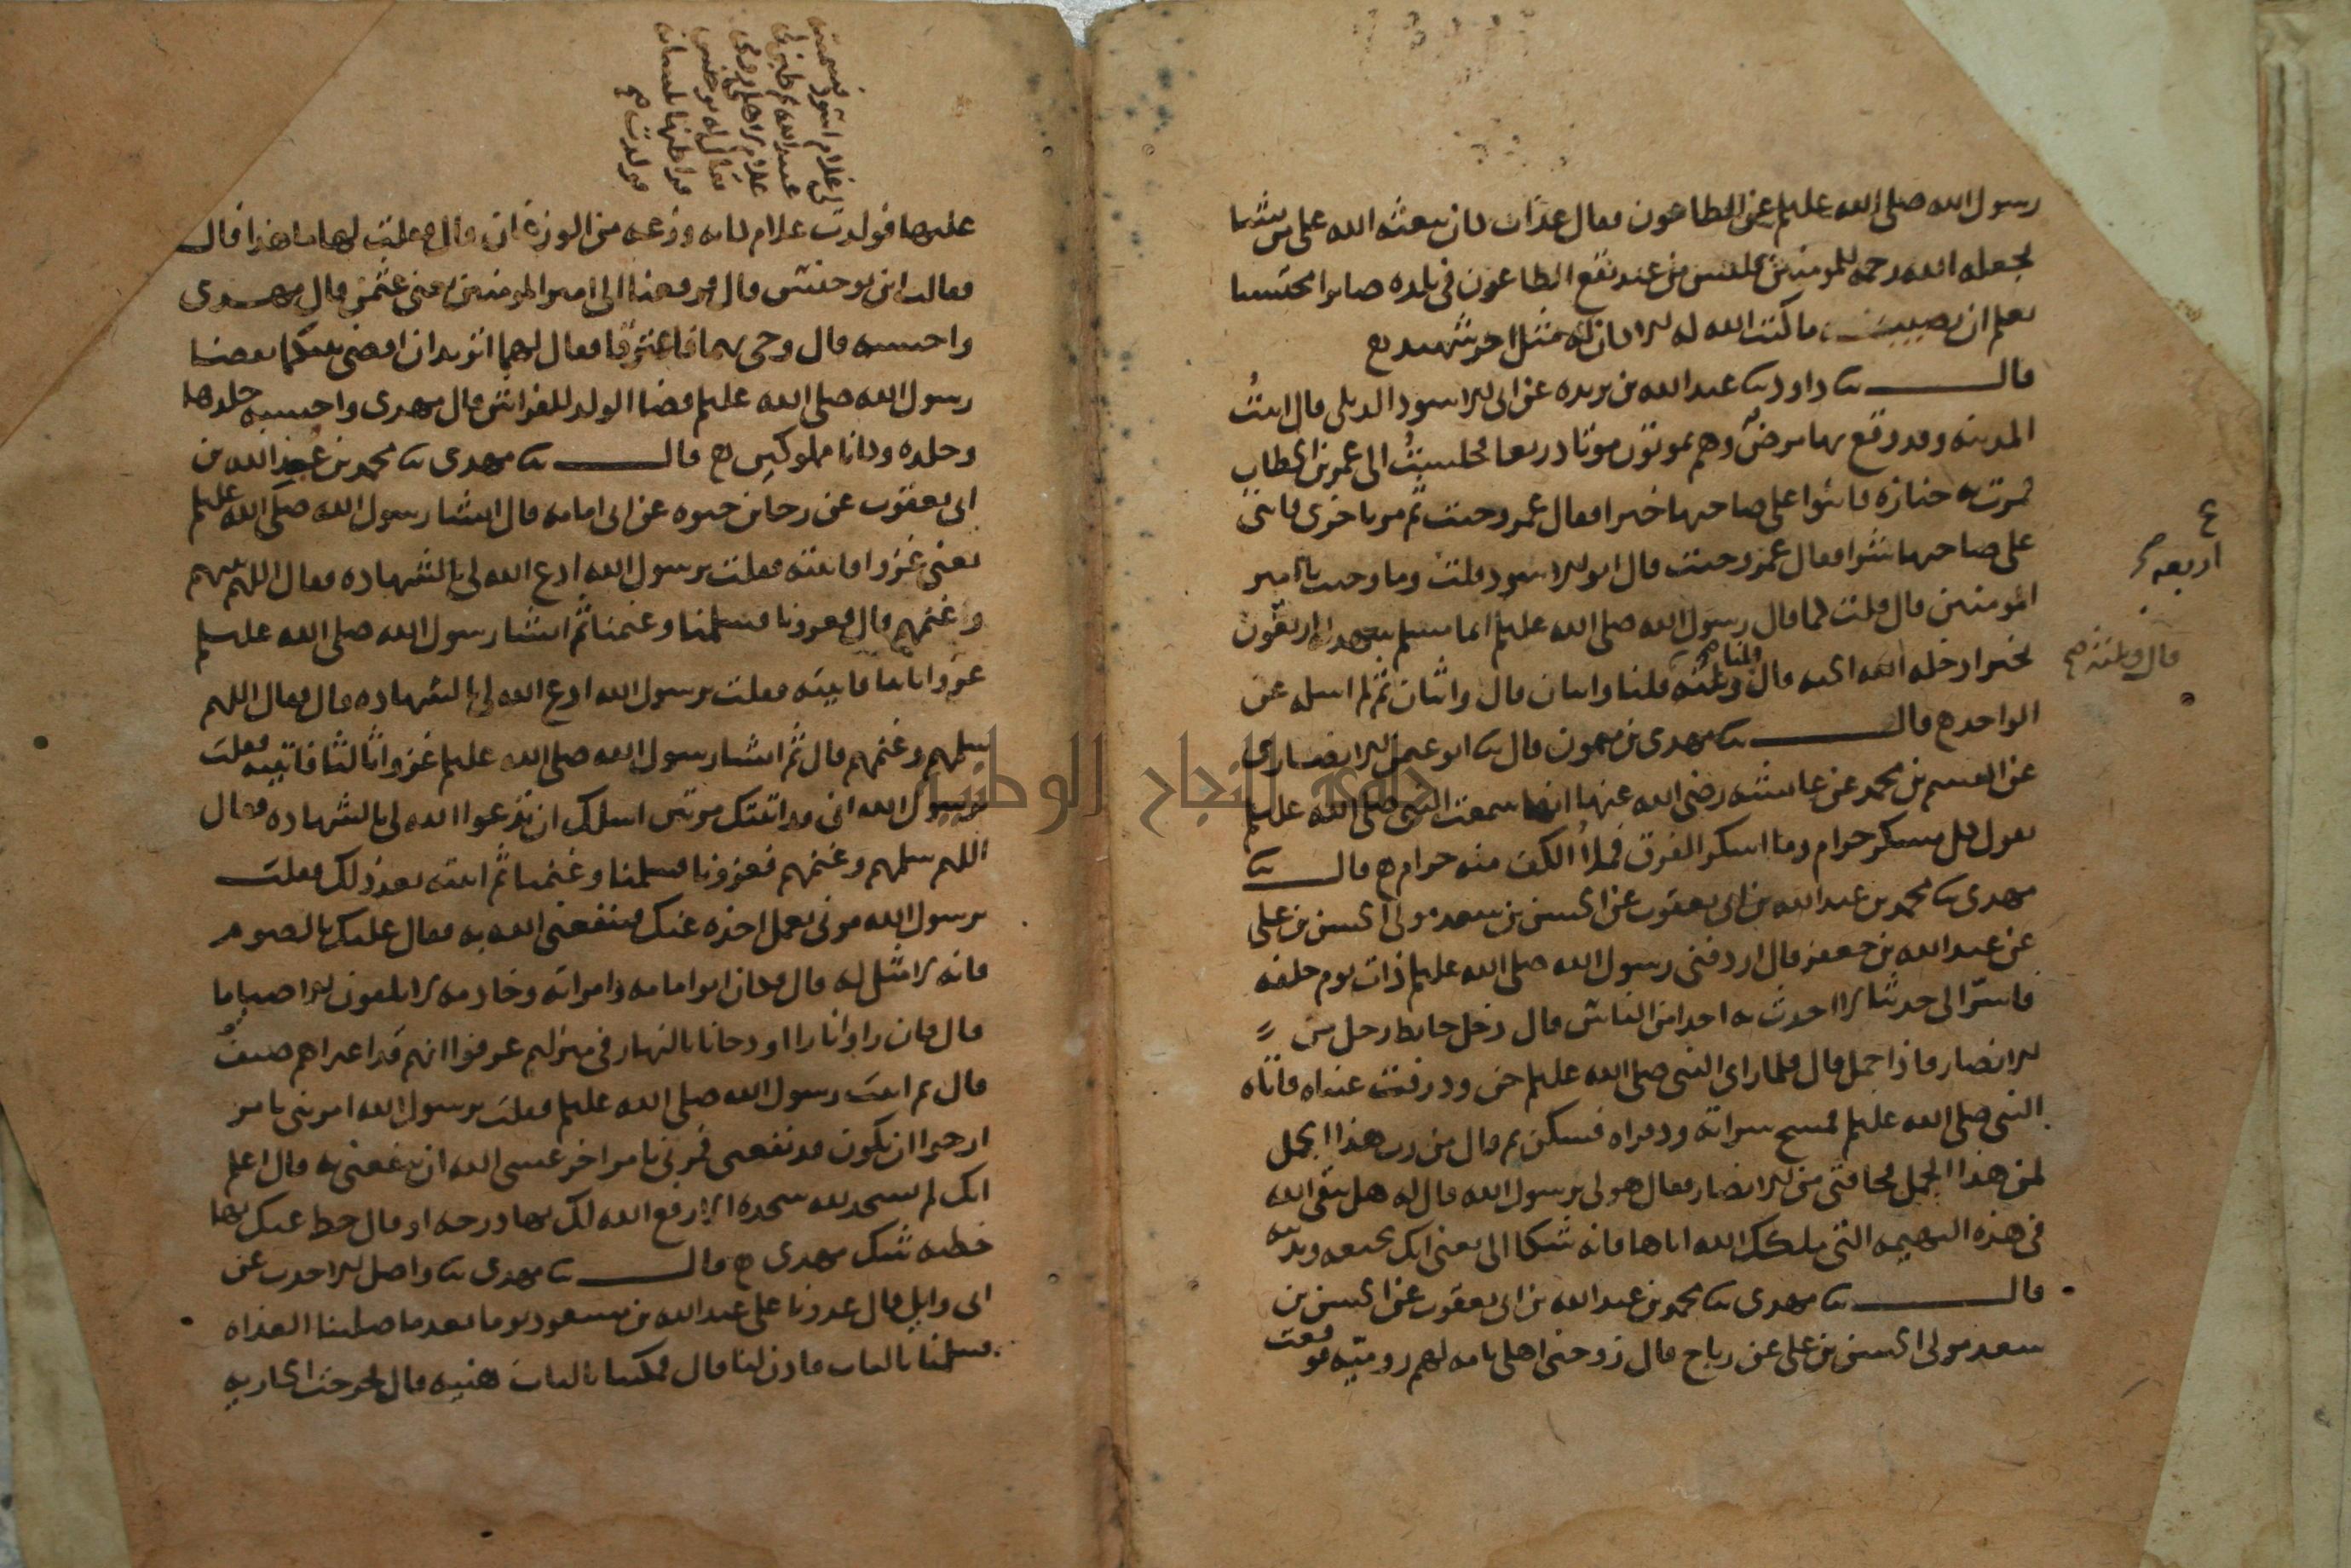 رسول الله صلى الله عليه وسلم عن الطاعون فقال عذاب كان يبعثه الله على من يشا
فجعله الله رحمة للمومنين فليس من عبد يقع الطاعون في بلده صابرا محتسبا
يعلم ان يصيبه ما كتب الله له الا كان له مثل اجر شهيد
قال نا داود نا عبد الله بن بريده عن ابي الاسود الديلي قال اتيت
المدينه وقد وقع بها مرض وهم يموتون موتا ذريعا فجلست الى عمر بن الخطاب
فمرت به جنازه فاثنوا على صاحبها خيرا فقال عمر وجبت ثم مر باخرى فاثني
على صاحبها شرا فقال عمر وجبت قال ابو الاسود قلت وما وجبت يا امير
المومنين قال قلت كما قال رسول الله صلى الله عليه وسلم ايما مسلم يشهد له اربعون
اربعه
بخير ادخله الله الجنه قال وثلثه قلنا واثنان قال واثنان ثم لم اسله عن
قلنا
قال وثلثه
الواحد قال نا مهدي بن ميمون قال نا ابو عثمن الانصاري
عن القسم بن محمد عن عائشه رضي الله عنها انها سمعت النبي صلى الله عليه وسلم
يقول كل مسكر حرام وما اسكر الفرق فملأ الكف منه حرام قال نا
مهدي نا محمد بن عبد الله بن ابي يعقوب عن الحسن بن سعد مولى الحسن بن علي
عن عبد الله بن جعفر قال اردفني رسول الله صلى الله عليه وسلم ذات يوم خلفه
فاسر الي حديثا لا احدث به احدا من الناس قال دخل حايط رجل من
الانصار فاذا جمل قال فلما راى النبي صلى الله عليه وسلم حن وذرفت عيناه فاتاه
النبي صلى الله عليه وسلم فمسح سراته وذفراه فسكن ثم قال من رب هذا الجمل
لمن هذا الجمل فجا فتى من الانصار فقال هو لي يرسول الله قال له هل تتقي الله
في هذه البهيمه التي ملكك الله اياها فانه شكا الي يعني انك تجيعه وتدئبه
قال نا مهدي نا محمد بن عبد الله بن ابي يعقوب عن الحسن بن
سعد مولى الحسن بن علي عن رباح قال زوجني اهلي بامه لهم روميه فوقعت
عليها فولدت غلام كانه وزغه من الوزغان قال فقلت لها ما هذا قال
لي غلام اسود فسميته
عبد الله ثم طبن لي
غلام لاهلي رومي
فقال له يوحنس
فراطنها بلسانه
فولدت
فقالت ابن يوحنس قال فرفعنا الى امير المومنين يعني عثمن قال مهدي
واحسبه قال وجي بهما فاعترفا فقال لهما اتريدان اقضي بينكما بقضا
رسول الله صلى الله عليه وسلم قضا الولد للفراش قال مهدي واحسبه جلدها
وجلده وكانا مملوكين قال نا مهدي نا محمد بن عبد الله بن
ابي يعقوب عن رجا بن حيوه عن ابي امامه قال انشا رسول الله صلى الله عليه وسلم
يعني غزوا فاتيته فقلت يرسول الله ادع الله لي بالشهاده فقال اللهم سلمهم
وغنمهم قال فغزونا فسلمنا وغنمنا ثم انشا رسول الله صلى الله عليه وسلم
غزوا ثانيا فاتيته فقلت يرسول الله ادع الله لي بالشهاده قال فقال اللهم
سلمهم وغنمهم قال ثم انشا رسول الله صلى الله عليه وسلم غزوا ثالثا فاتيته فقلت
يرسول الله اني قد اتيتك مرتين اسلك ان تدعوا الله لي بالشهاده فقال
اللهم سلمهم وغنمهم فغزونا فسلمنا وغنمنا ثم اتيته بعد ذلك فقلت
يرسول الله مرني بعمل اخذه عنك فينفعني الله به فقال عليك بالصوم
فانه لا مثل له قال فكان ابو امامه وامراته وخادمه لا يلفون الا صياما
قال فان راوا نارا او دخانا بالنهار في منزلهم عرفوا انهم قد اعتراهم ضيف
قال ثم اتيت رسول الله صلى الله عليه وسلم فقلت يرسول الله امرتني بامر
ارجوا ان يكون قد نفعني فمرني بامر اخر عسى الله ان ينفعني به قال اعلم
انك لم تسجد لله سجده الا رفع الله لك بها درجه او قال حط عنك بها
خطيه شك مهدي قال نا مهدي نا واصل الاحدب عن
ابي وايل قال غدونا على عبد الله بن مسعود يوما بعد ما صلينا الغداه
فسلمنا بالباب فاذن لنا قال فمكثنا بالباب هنيه قال فخرجت الجاريه